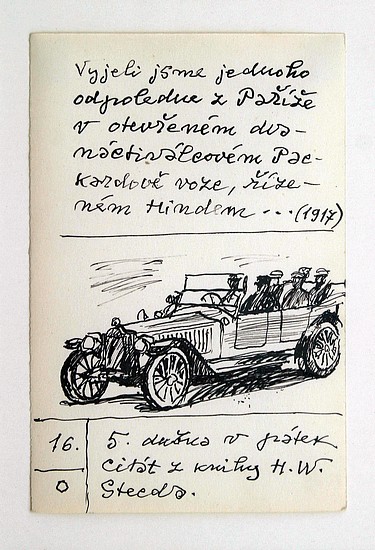 Vyjeli jsme jednoho
odpoledne z Paříže
v otevřeném dva-
náctiválcovém Pac-
kardově voze, říze-
ném Hindem ... (1917)
16.
5. družka v pátek
citát z knihy H.W.
Steeda.
O